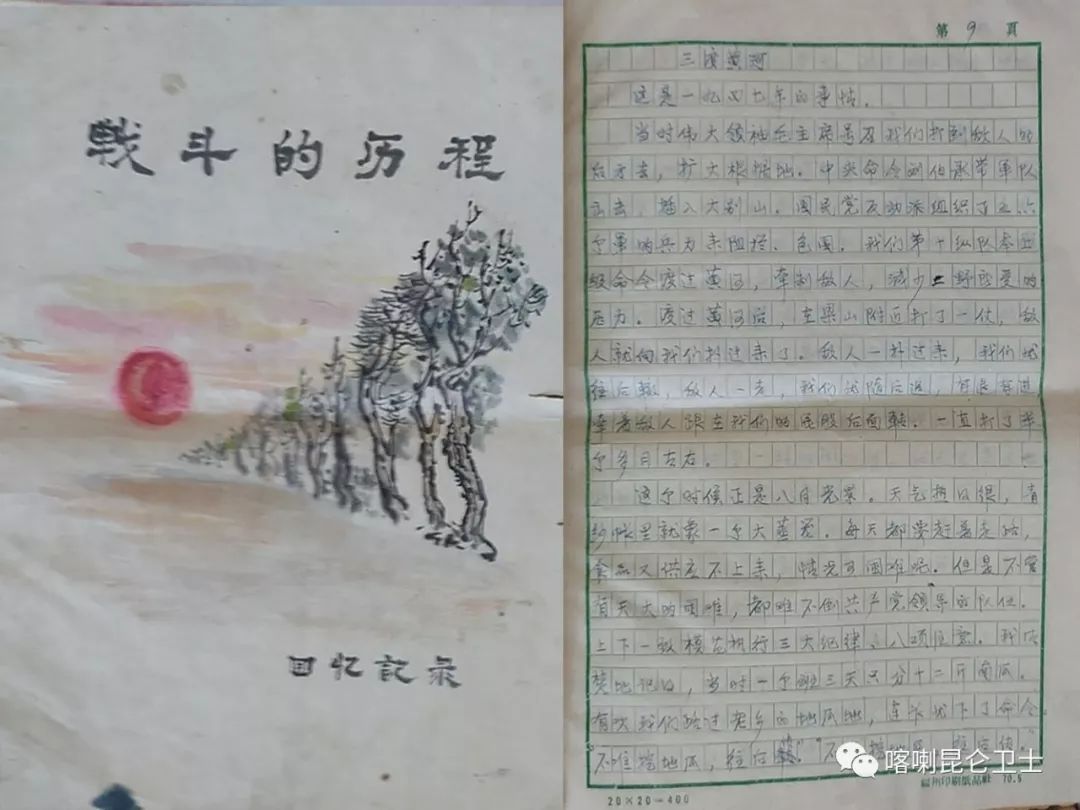 战斗的历程
回忆記录
第9頁
三渡黄河
这是一九四七年的事情。
当时伟大领袖毛主席号召我们打到敌人的
后方去，扩大根据地。中央命令刘伯承带军队
出去，插入大别山。国民党反动派组织了五六
个军的兵力来阻挡、包围。我们第十纵队奉上
级命令渡过黄河，牵制敌人，减少二野所受的
压力。渡过黄河后，在梁山附近打了一仗，敌
人就向我们扑过来了。敌人一扑过来，我们就
往后撤，敌人一走，我们就随后追，
牵着敌人跟在我们的屁股后面转。一直打了半
个多月左右。
这个时候正是八月光景。天气热的很，青
纱帐里就象一个大蒸笼。每天都要赶着走路，
食品又供应不上来，情况可困难呢。但是不管
有天大的困难，都难不倒共产党领导的队伍。
上下一致模范执行三大纪律、八项注意。我清
楚地记得，当时一个班三天只分十二斤南瓜。
有次我们路过老乡的地瓜地，连部就下了命令
"不准挖地瓜，往后
20×20=400
温州印刷纸品社 70.5
喀喇昆仑卫士